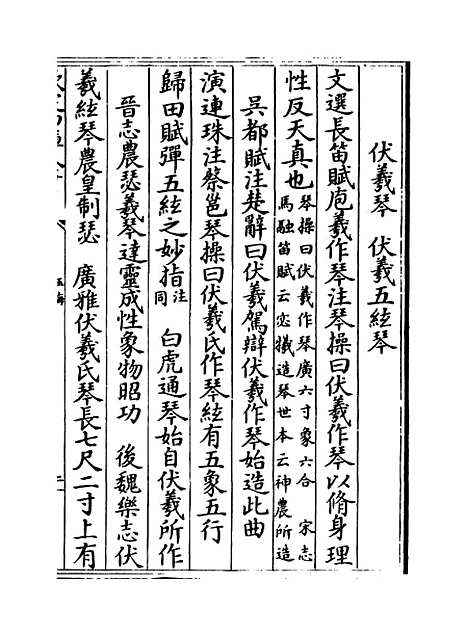 伏羲琴　伏羲五絃琴
文選長笛賦庖羲作琴注琴操曰伏羲作琴以脩身理
性反天真也琴操曰伏羲作琴廣六寸象六合　宋志
馬融笛賦云宓犧造琴世本云神農所造
吳都賦注楚辭曰伏羲駕辯伏羲作琴始造此曲
演連珠注蔡邕琴操曰伏羲氏作琴絃有五象五行
歸田賦彈五絃之妙指注同　白虎通琴始自伏羲所作
晉志農瑟羲琴達靈成性象物昭功　後魏樂志伏
羲絃琴農皇制瑟　廣雅伏羲氏琴長七尺二寸上有
玉海